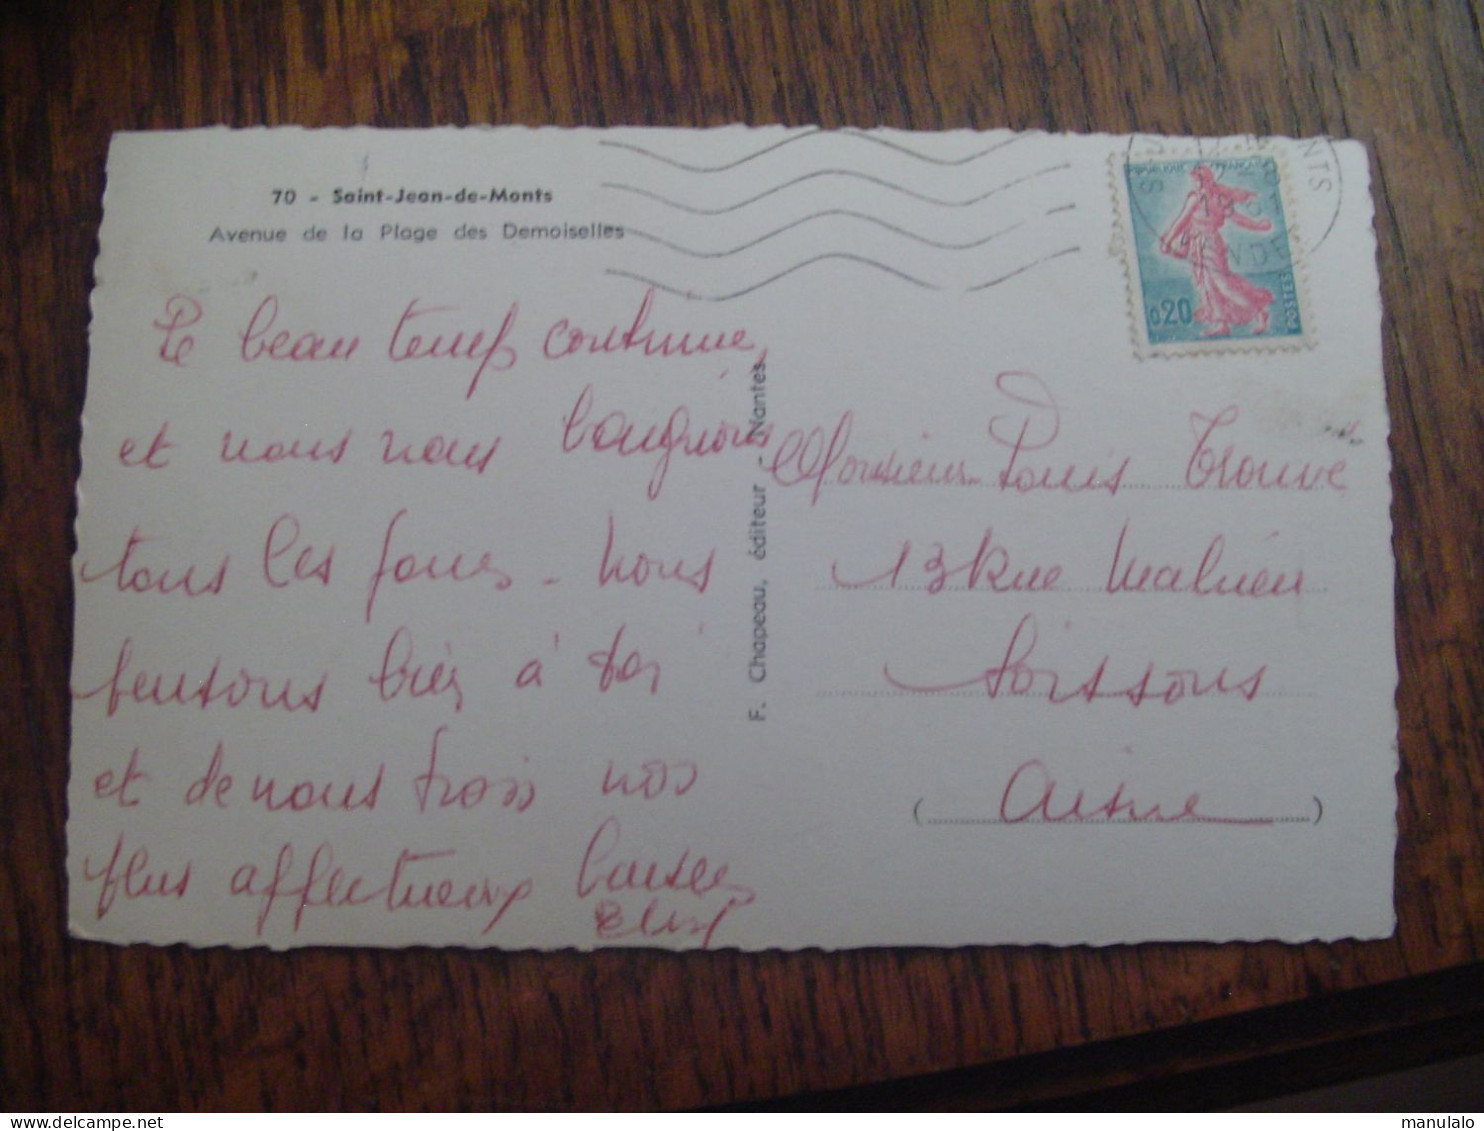 70 - Saint-Jean-de-Monts
Avenue de la Plage des Demoiselles
Le beau temps continue
et nous nous baignons
tous les jours - nous
pensons bien à toi
et de nous trois nos
plus affectueux baisers
F. Chapeau, éditeur - Nantes
0,20
POSTES
Monsieur Louis Trouvé
13 Rue
Soissons
(Aisne)
manulalo